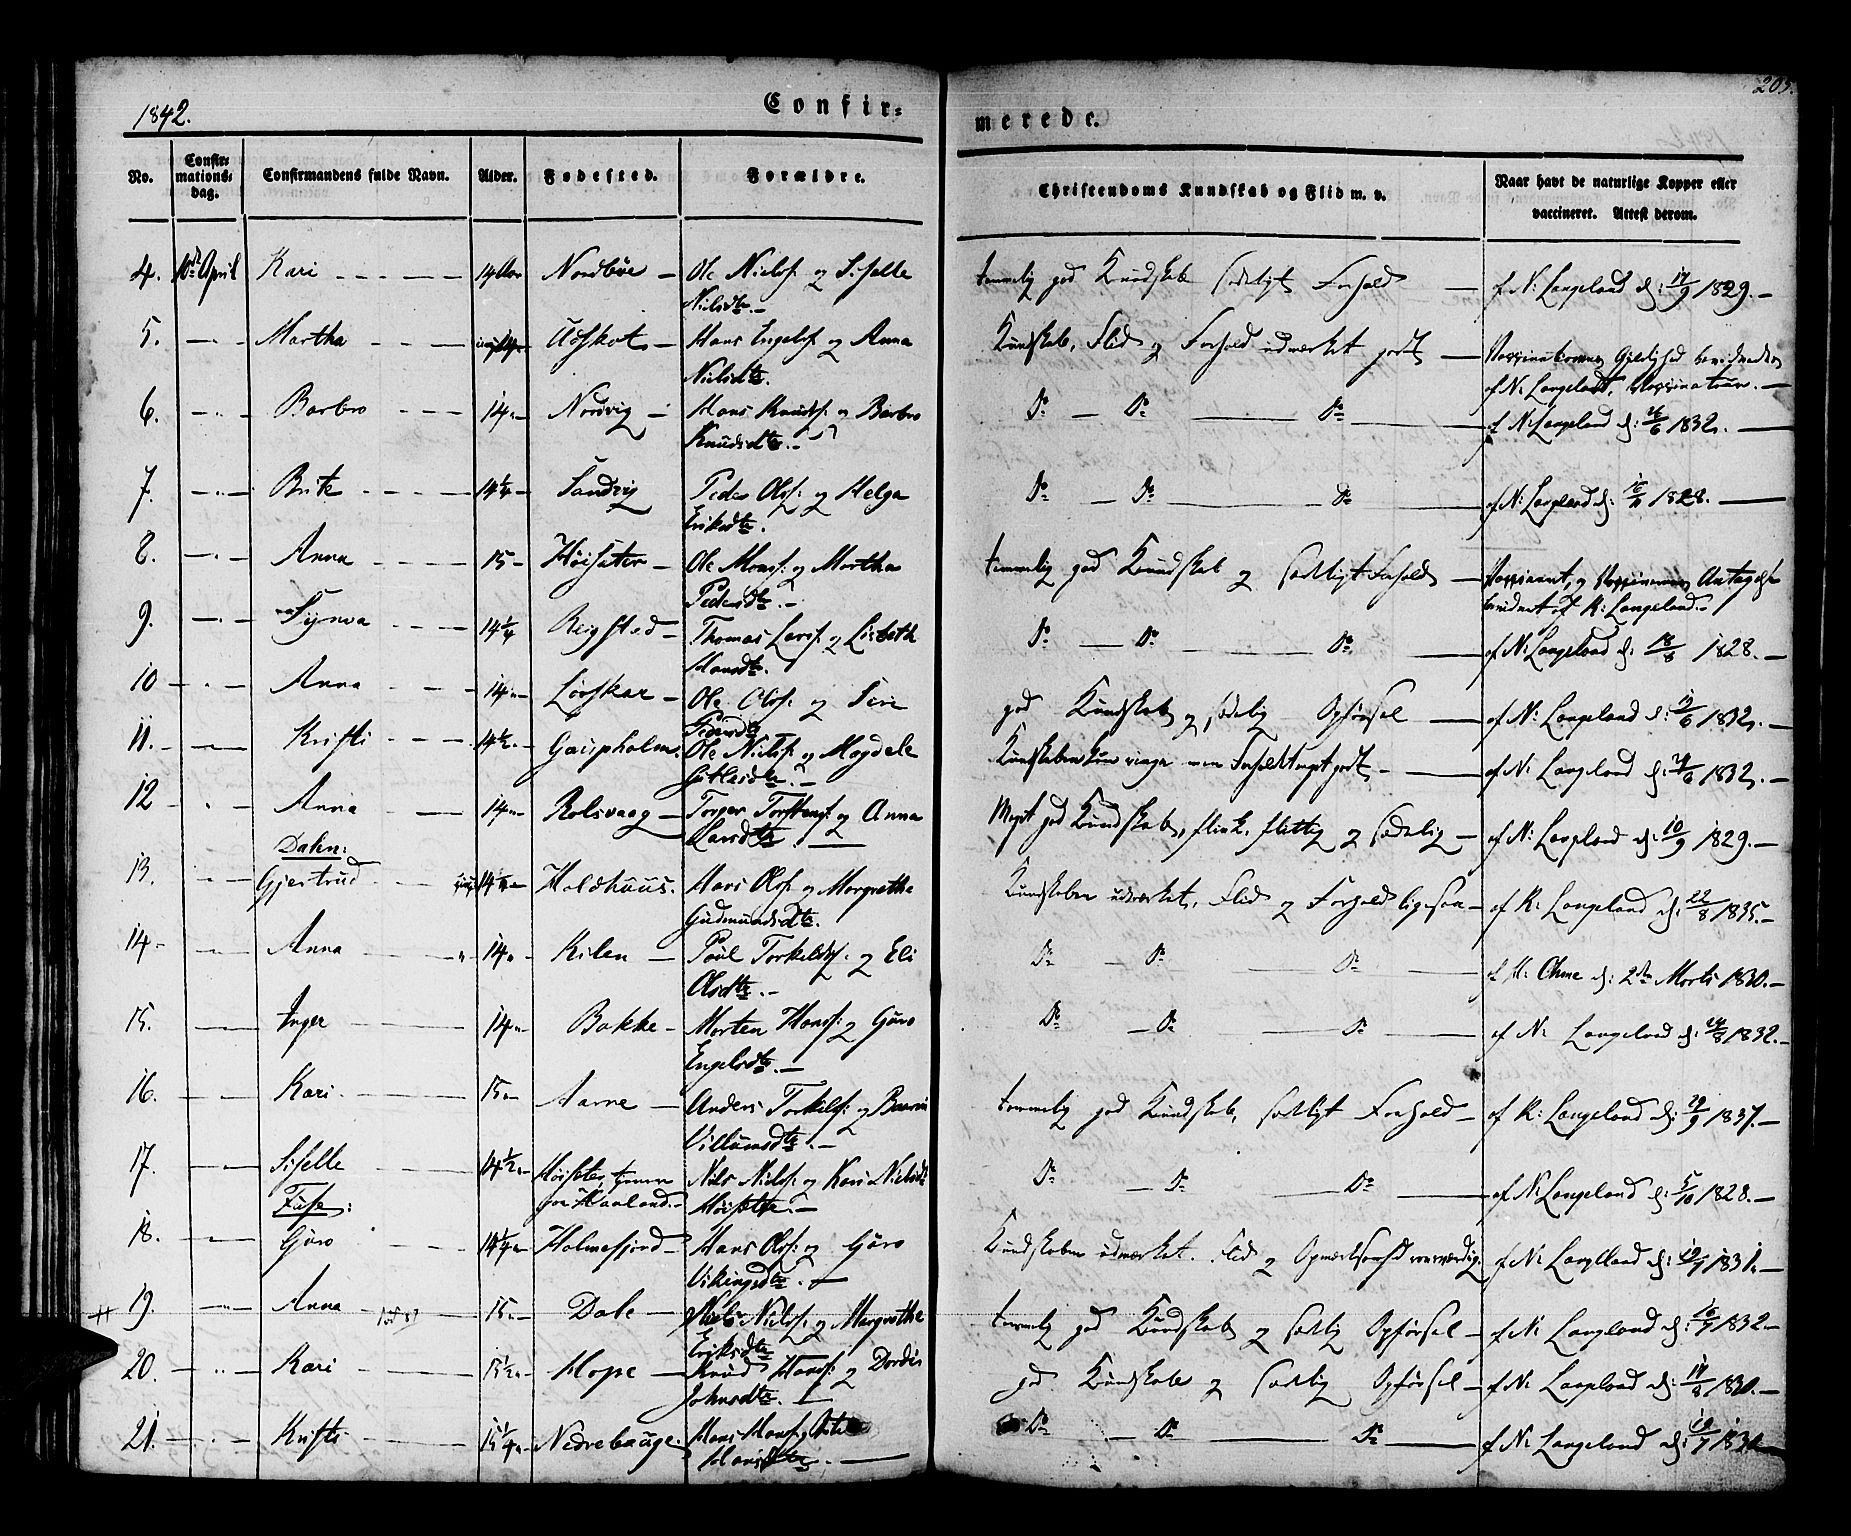 1842.
Confir=
merede.
205.
No.
Confir=
mations=
dag.
Confirmandens fulde Navn.
Alder.
Fødested.
Forældre.
Christendoms Kundskab og Flid m. v.
Naar havt de naturlige Kopper eller
vaccineret. Attest derom.
4. 10de April Kari 14 Aar Nordbøe Ole Nielss: og Siselle
Nielsdtr. temmelig god Kundskab sædeligt Forhold af N: Langeland d: 17/9 1829.
5. Martha 14 Hans Engelss: og Anna
Nielsdtr. Kundskab, Flid og Forhold udmærket godt
af N: Langeland, Vaccinateur.
6. Barbro 14 Nordvig Hans Knuds: og Barbro
Knudsdtr. Do Do Do af N: Langeland d: 26/6 1832.
7. Brite 14 1/4 Sandvig Peder Olss: og Helga
Eriksdtr. Do Do Do af N: Langeland d: 1828.
8. Anna 15 Høisæter Ole Monss: og Martha
Pedersdtr. temmelig god Kundskab og sædeligt Forhold
af R: Langeland.
9. Synva 14 1/4 Reigstad Thomas Larss: og Lisbeth
Hansdtr. Do Do Do af N: Langeland d: 18/8 1828.
10 Anna 14 Løvskar Ole Olss: og Siri
Pedersdtr. god Kundskab og sædelig Opførsel af N: Langeland d: 1832.
11. Kristi 14 1/2 Gaupholm. Ole Nielss: og Magdele
Kundskaben kun ringe men Forholdt meget godt af N: Langeland d: 1832.
12 Anna 14 Rolsvaag Torger Torstens: og Anna
Larsdtr. Meget god Kundskab, flink, flittig og sædelig af N: Langeland d: 10/9 1829.
Dalen:
13. Gjertrud 14 Holdhuus. Hans Olss: og Margrethe
Gudmundsdtr. Kundskaben udmærket, Flid og Forhold ligesaa af R: Langeland d: 22/8 1835.
14 Anna 14 Kilen Poul Torkelds: og Eli
Olsdtr. Do Do Do af H: Ohme d: 2den Marts 1830.
15. Inger 14 Bakke Morten Hanss: og Guro
Engelsdtr. Do Do Do af N: Langeland d: 1832.
16. Kari 15 Aarre Anders Torkels: og
Villumsdtr. temmelig god Kundskab, sædeligt Forhold af R: Langeland d: 29/9 1837.
17. Siselle 14 1/2 Høisæter, tjener
paa Haaland. Nils Nielss: og Kari Nielsdtr
Høisæter. Do Do Do af N: Langeland d: 5/10 1828.
Fuse:
18. Guro 14 1/4 Holmefjord Hans Olss: og Guro
Vikingsdtr. Kundskaben udmærket. Flid og Opmærksomhed af N: Langeland d: 1831.
19. Anna 15 Dale Niels Nielss: og Margrethe
Eriksdtr temmelig god Kundskab og sædelig Opførsel af N: Langeland d: 1832
20. Kari 15 1/2 Hope Knud Hanss: og Dordei
Johnsdtr. god Kundskab og sædelig Opførsel af N: Langeland d: 1830.
21. Kristi 15 1/4 Nedrehauge. Hans Hanss: og
Hansdtr. Do Do Do af N: Langeland d: